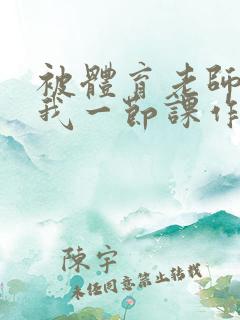 被體育老師
我一節課作
陳宇
未經同意禁止轉載